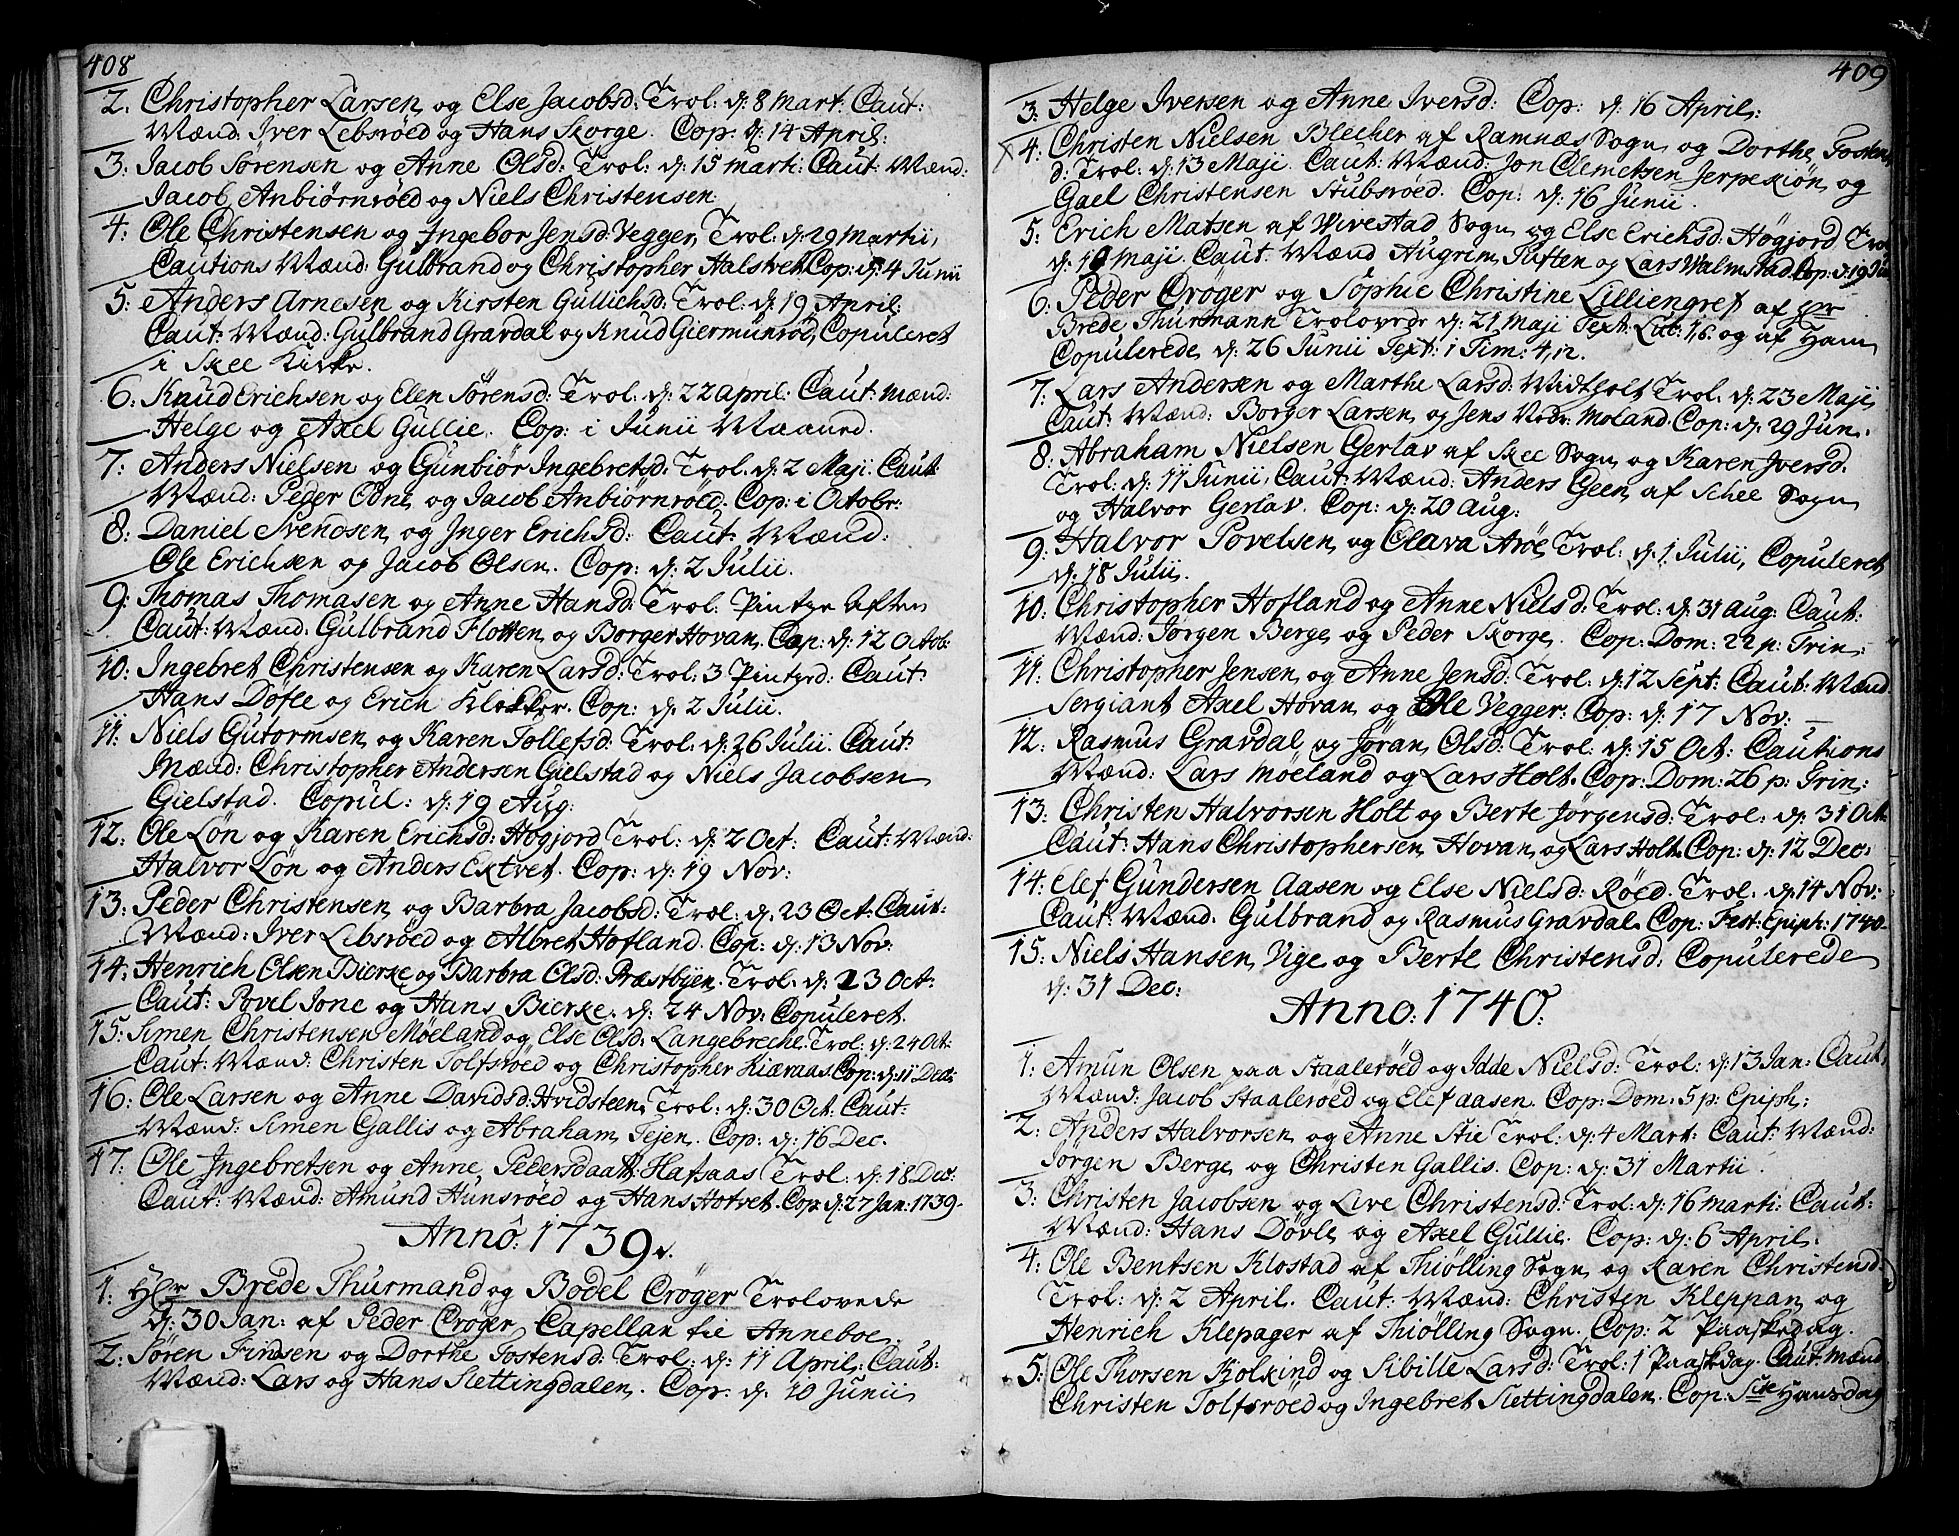 408
2. Christopher Larsen og Else Jacobsd: Trol: d: 8 Mart: Caut:
Mænd: Iver Lebsröed og Hans Skorge. Cop: d: 14 April:
3: Jacob Sörensen og Anne Olsd: Trol: d: 15 Marti: Caut: Mænd:
Jacob Anbiörnröed og Niels Christensen
4: Ole Christensen og Ingebor Jensd: Vegger, Trol: d: 29 Martii,
Cautions Mænd: Gulbrand og Christopher Halstvet Cop: d: 4 Junii
5: Anders Arnesen og Kirsten Gullichsd: Trol: d: 19 April:
Caut: Mænd: Gulbrand Gravdal og Knud Giermunröd, Copuleret
i Skee Kirke.
6: Knud Erichsen og Elen Sörensd: Trol: d: 22 april: Caut: Mænd:
Helge og Axel Gullie. Cop: i Junii Maaned.
7: Anders Nielsen og Gunbiör Ingebretsd: Trol: d: 2 Maji Caut:
Mænd: Peder Odne og Jacob Anbiörnröed: Cop: i Octobr:
8: Daniel Svendsen og Inger Erichsd: Caut: Mænd:
Ole Erichsen og Jacob Olsen. Cop: d: 2 Julii.
9: Thomas Thomasen og Anne Hansd: Trol: Pintze Aften
Caut: Mænd: Gulbrand Flotten og Borger Hovan. Cop: d: 12 Octob:
10: Ingebret Christensen og Karen Larsd: Trol: 3 Pintzed: Caut:
Hans Döfle og Erich Klokker. Cop: d: 2 Julii.
11: Niels Gutormsen og Karen Tollefsd: Trol: d: 26 Julii. Caut:
Mænd: Christopher Andersen Gielstad og Niels Jacobsen
Gielstad. Copul: d: 19 Aug:
12: Ole Lön og Karen Erichsd: Högjord Trol: d: 2 Oct: Caut: Mænd:
Halvor Lön og Anders Extvet. Cop: d: 19 Nov:
13: Peder Christensen og Barbra Jacobsd: Trol: d: 23 Oct: Caut:
Mænd: Iver Lebsröed og Albret Hofland. Cop: d: 13 Nov:
14: Henrich Olsen Bierke og Barbra Olsd: Præstbyen. Trol: d: 23 Oct:
Caut: Povel Ione og Hans Bierke. d: 24 Nov: Copuleret.
15: Simen Christensen Möeland og Else Olsd: Langebreche. Trol: d: 24 Oct:
Caut: Mænd: Christen Tolfsröed og Christopher Kiæraas. Cop: d: 11 Dec:
16: Ole Larsen og Anne Davidsd: Hvidsteen. Trol: d: 30 Oct. Caut:
Mænd: Simen Gallis og Abraham Tejen. Cop: d: 16 Dec.
17: Ole Ingebretsen og Anne Pedersdaatt: Hafsaas Trol: d: 18 Dec:
Caut: Mænd: Amund Hunsröed og Hans Hotvet. Cop: d: 27 Jan: 1739.
Anno: 1739.
1: Hr Brede Thurmand og Bodel Cröger Trolovede
d: 30 Jan: af Peder Cröger Capellan til Anneboe.
2: Sören Findsen og Dorthe Tostensd: Trol: d: 11 April: Caut:
Mænd: Lars og Hans Slettingdalen. Cop: d: 10 Junii
409
3: Helge Iversen og Anne Iversd: Cop: d: 16 April:
4: Christen Nielsen Blecher af Ramnæs Sogn og Dorthe Tosten
d: Trol: d: 13 Maji. Caut: Mænd: Jon Clemetsen Jerpekiön og
Gael Christensen Stubsröed. Cop: d: 16 Junii.
5: Erich Matsen af Vivestad Sogn og Else Erichsd: Högjord Trol
d: 19 Maji. Caut: Mænd Augrim Tuften og Lars Valmstad Cop: d: 19 Ju
6: Peder Cröger og Sophie Christine Lilliengref af Hr
Brede Thurmann Trolovede d: 21 Maji Text: Luc: 1,6. og af Ham
Copulerede d: 26 Junii Text: 1 Tim: 4,12.
7: Lars Andersen og Marthe Larsd: Vidtholt Trol: d: 23 Maji,
Caut: Mænd: Borger Larsen og Jens Nedr: Moland. Cop: d: 29 Jun.
8: Abraham Nielsen Gerlav af Skee Sogn og Karen Iversd.
Trol: d: 11 Junii, Caut: Mænd: Anders Geen af Schee Sogn
og Halvor Gerlav. Cop: d: 20 Aug:
9: Halvor Povelsen og Olava Aröe Trol: d: 1 Julii, Copuleret
d: 18 Julii.
10: Christopher Hofland og Anne Nielsd: Trol: d: 31 Aug: Caut:
Mænd: Jörgen Berge og Peder Skorge. Cop: Dom: 22 p: Trin:
11: Christopher Jensen og Anne Jensd: Trol: d: 12 Sept: Caut: Mænd
Sergiant Axel Hovan og Ole Vegger: Cop: d: 17 Nov:
12: Rasmus Gravdal og Jöran Olsd: Trol: d: 15 Oct: Cautions
Mænd: Lars Möeland og Lars Holt. Cop: Dom: 26 p: Trin:
13: Christen Halvorsen Holt og Berte Jörgensd: Trol: d: 31 Oct:
Caut: Hans Christophersen Hovan og Lars Holt. Cop: d: 12 Dec:
14: Elef Gundersen Aasen og Else Nielsd: Röed. Trol: d: 14 Nov:
Caut: Mænd: Gulbrand og Rasmus Gravdal. Cop: Fest: Epiph: 1740.
15: Niels Hansen Vige og Berte Christensd: Copulerede
d: 31 Dec:
Anno: 1740.
1: Amun Olsen paa Staaleröed og Idde Nielsd: Trol: d: 13 Jan: Caut:
Mænd: Jacob Staaleröed og Elef Aasen. Cop: Dom: 5 p: Epiph:
2: Anders Halvorsen og Anne Stie Trol: d: 4 Mart: Caut: Mænd:
Jörgen Berge og Christen Gallis. Cop: d: 31 Martii.
3: Christen Jacobsen og Live Christensd: Trol: d: 16 Marti: Caut:
Mænd: Hans Dövle og Axel Gullie. Cop: d: 6 April.
4: Ole Bentsen Klostad af Thiölling Sogn og Karen Christensd.
Trol: d: 2 April. Caut: Mænd: Christen Kleppan og
Henrich Klepager af Thiölling Sogn. Cop: 2 Paaskedag.
5: Ole Thorsen Kolkind og Sibille Larsd: Trol: 1 Paaskdag. Caut: Mænd
Christen Tolfsröed og Ingebret Slettingdalen. Cop: Scte Hansdag